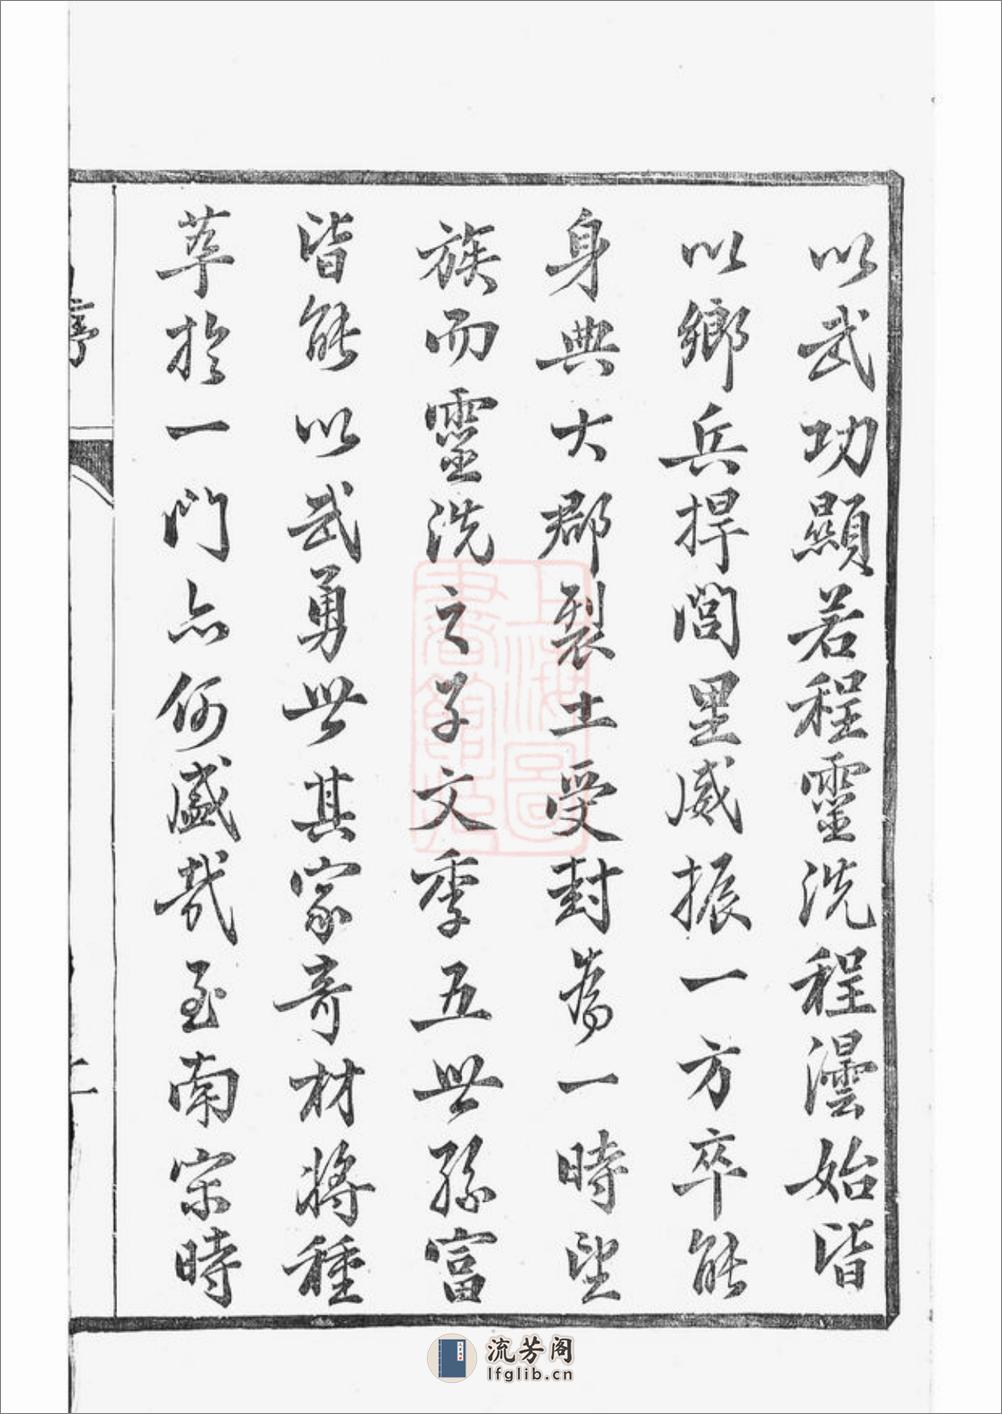 以武功顯若程靈洗程澐始皆
以鄉兵捍閭里威振一方卒能
身典大郡裂土受封為一時望
族而靈洗之子文季五世孫富
皆能以武勇世其家奇材將種
萃於一門亦何盛哉至南宋時
序
二
上海圖書館藏
流芳阁
lfglib.cn